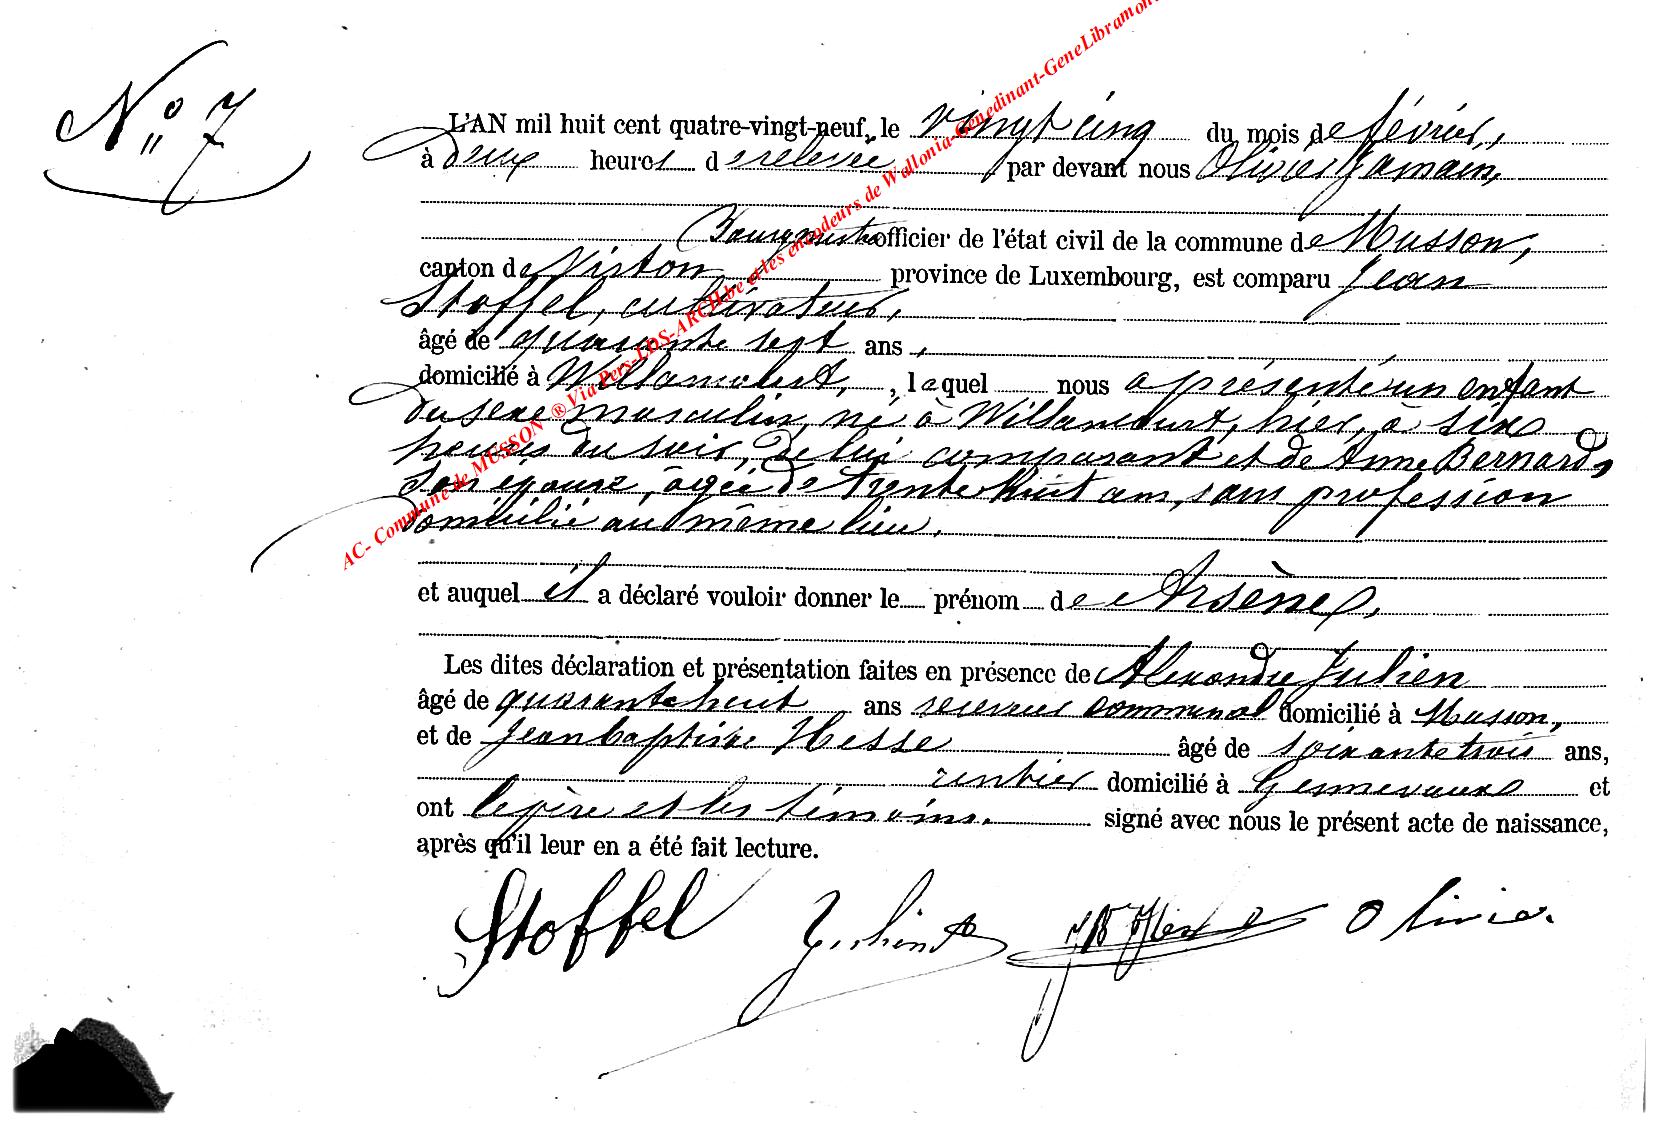 N° 7
L'AN mil huit cent quatre-vingt-neuf, le vingt cinq du mois de février,
à deux heures de relevée par devant nous Olivier Jamain,
Bourgmestre officier de l'état civil de la commune de Musson,
canton de Virton province de Luxembourg, est comparu Jean
Stoffel, cultivateur,
âgé de quarante sept ans,
domicilié à Willancourt, , laquel nous a présenté un enfant
du sexe masculin, né à Willancourt, hier, à six
heures du soir, de lui comparant et de Anne Bernard,
son épouse, âgée de trente huit ans, sans profession
domicilié au même lieu.
et auquel il a déclaré vouloir donner le prénom de Arsène,
Les dites déclaration et présentation faites en présence de Alexandre Julien
âgé de quarante huit ans receveur communal domicilié à Musson,
et de Jean baptiste Hesse âgé de soixante trois ans,
rentier domicilié à Gennevaux et
ont le père et les témoins. signé avec nous le présent acte de naissance,
après qu'il leur en a été fait lecture.
Stoffel Julien JB Hesse Olivier.
AC- Commune de MUSSON ® Via Pers-LDS-ARCH.be et les encodeurs de Wallonia-Genedinant-GeneLibramon